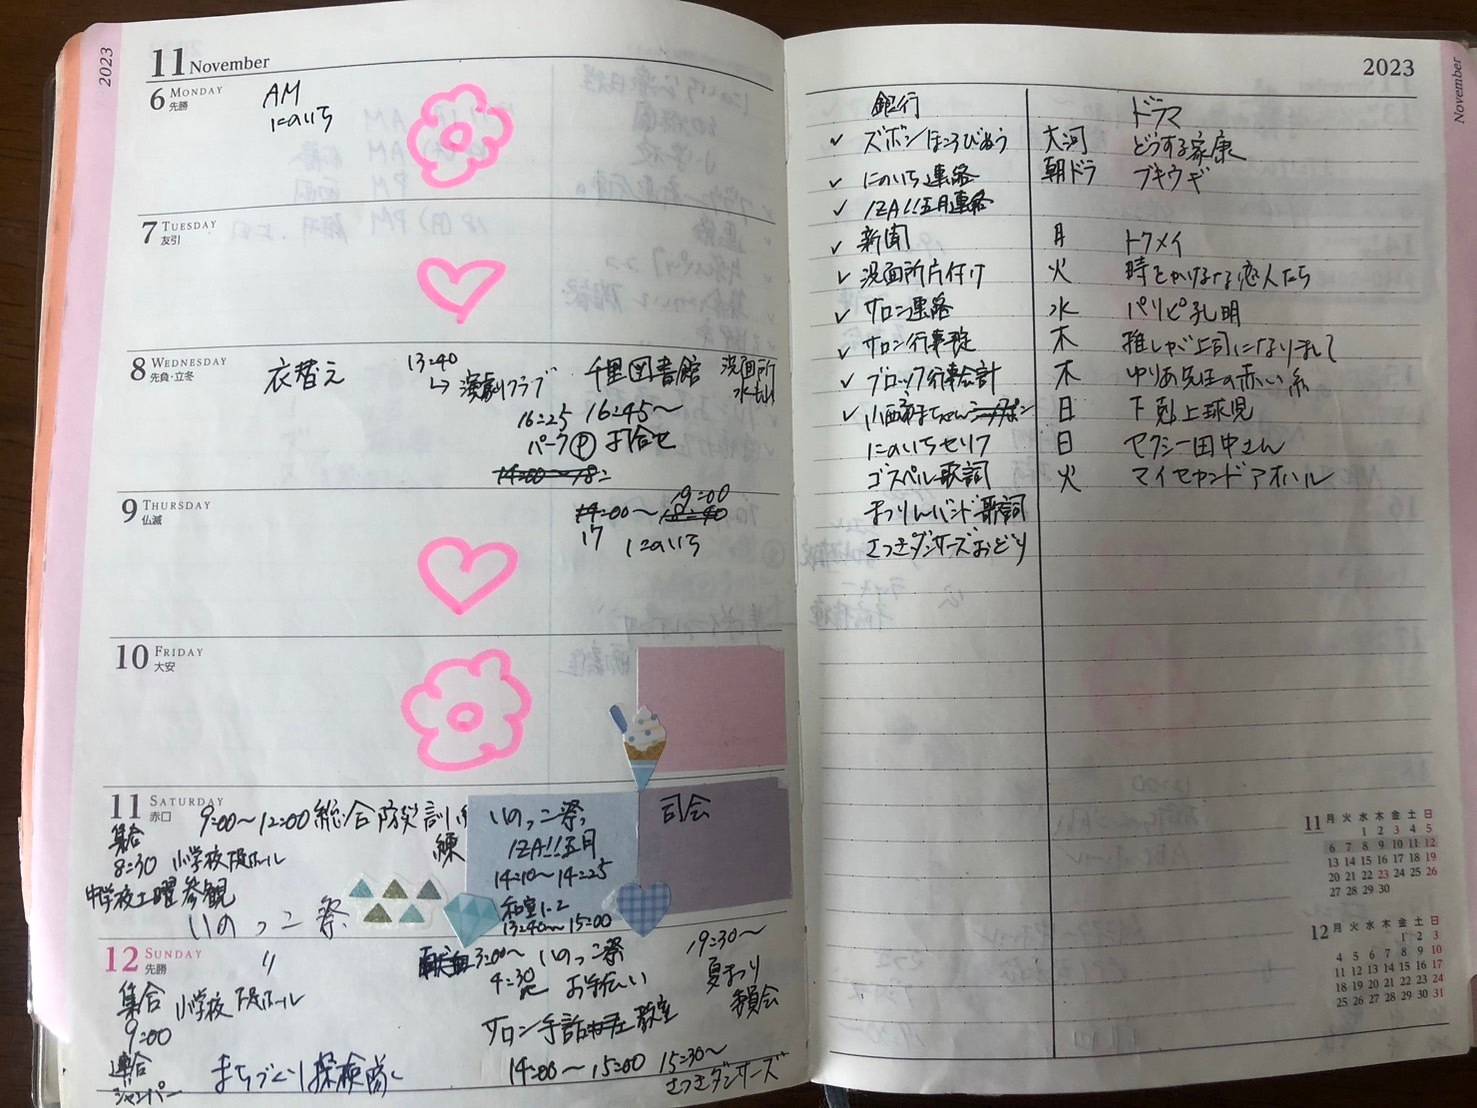 2023
11 November
6 MONDAY
先勝
AM
にのいち
7 TUESDAY
友引
8 WEDNESDAY
先負・立冬
衣替え
13:40
→演劇クラブ
16:25
パーク
千里図書館
16:45~
お合せ
洗面所
9 THURSDAY
仏滅
19:00
14:00~18:40
17 にのいち
10 FRIDAY
大安
11 SATURDAY
赤口
9:00~12:00 総合防災訓
練
集合
8:30 小学校 ホール
中学校土曜参観
いのっこ祭
いのっこ祭
IZA!!五月
14:10~14:25
和室1.2
13:40~15:00
司会
12 SUNDAY
先勝
〃
集合 小学校 ホール
9:00
連合
ジャンパー
まちづくり探検隊
3:00~ いのっこ祭
4:30 お手伝い
サロン手話 教室
14:00~15:00
19:30~
夏まつり
委員会
15:30~
さつきダンサーズ
2023
November
銀行
✓ ズボンほころびぬう
✓ にのいち連絡
✓ IZA!!五月連絡
✓ 新聞
✓ 洗面所片付け
✓ サロン連絡
✓ サロン行事
✓ ブロック行事会計
✓
にのいちセリフ
ゴスペル歌詞
まつりんバンド歌詞
さつきダンサーズおどり
ドラマ
大河 どうする家康
朝ドラ ブキウギ
月 トクメイ
火 時をかけるな恋人たち
水 パリピ孔明
木 推しが上司になりまして
木 ゆりあ先生の赤い糸
日 下剋上球児
日 セクシー田中さん
火 マイセカンドアオハル
11 月 火 水 木 金 土 日
1 2 3 4 5
6 7 8 9 10 11 12
13 14 15 16 17 18 19
20 21 22 23 24 25 26
27 28 29 30
12 月 火 水 木 金 土 日
1 2 3
4 5 6 7 8 9 10
11 12 13 14 15 16 17
18 19 20 21 22 23 24
25 26 27 28 29 30 31